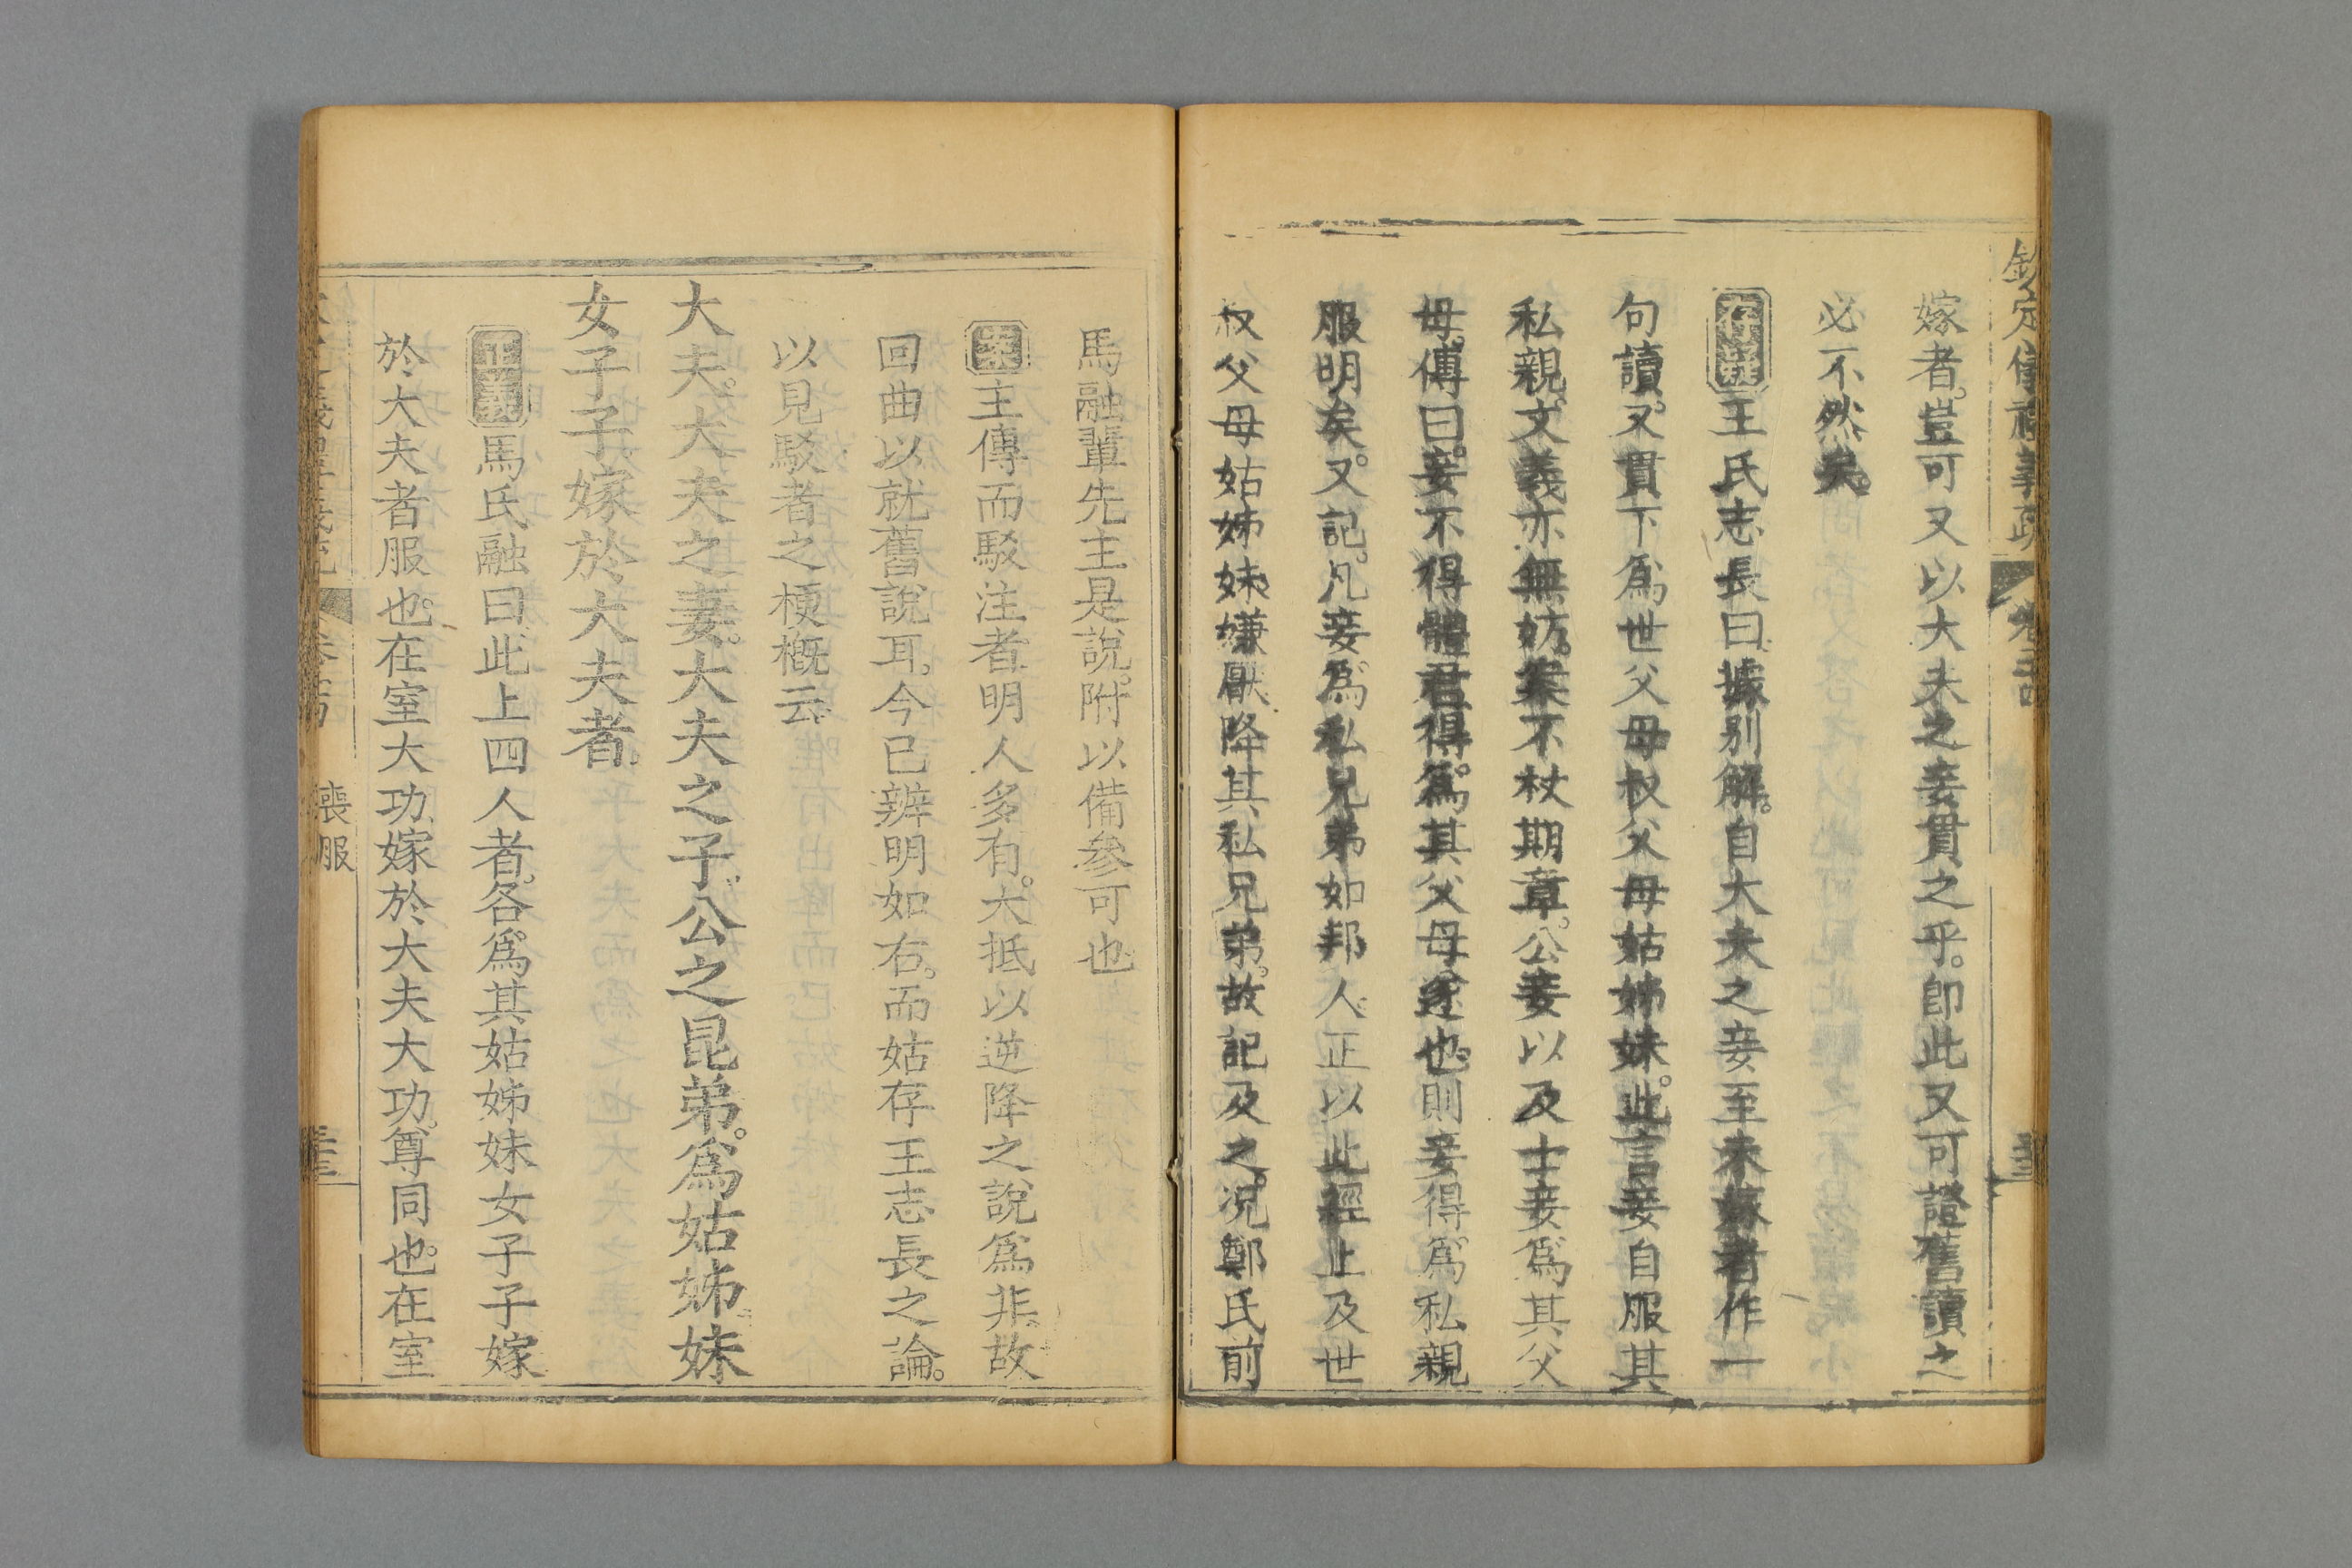 欽定儀禮義疏 卷二十四
嫁者。豈可又以大夫之妾貫之乎。卽此又可證舊讀之
必不然矣。
存疑王氏志長曰據別解。自大夫之妾至未嫁者作一
句讀。又貫下爲世父母叔父母姑姊妹。此言妾自服其
私親。文義亦無妨。案不杖期章。公妾以及士妾爲其父
母。傳曰。妾不得體君。得爲其父母遂也。則妾得爲私親
服明矣。又記。凡妾爲私兄弟如邦人。正以此經止及世
叔父母姑姊妹嫌厭降其私兄弟。故記及之。況鄭氏前
馬融輩先主是說。附以備參可也
案主傳而駁注者。明人多有。大抵以逆降之說爲非。故
回曲以就舊說耳。今已辨明如右。而姑存王志長之論。
以見駁者之梗槪云
大夫。大夫之妻。大夫之子。公之昆弟。爲姑姊妹
女子子嫁於大夫者
正義馬氏融曰此上四人者。各爲其姑姊妹女子子嫁
於大夫者服也。在室大功。嫁於大夫大功。尊同也。在室
喪服